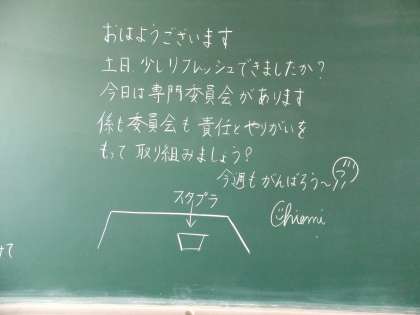 おはようございます
土日、少しリフレッシュできましたか?
今日は専門委員会があります
係も委員会も責任とやりがいを
もって取り組みましょう?
今週もがんばろう~
スタプラ
Chiemi
けて